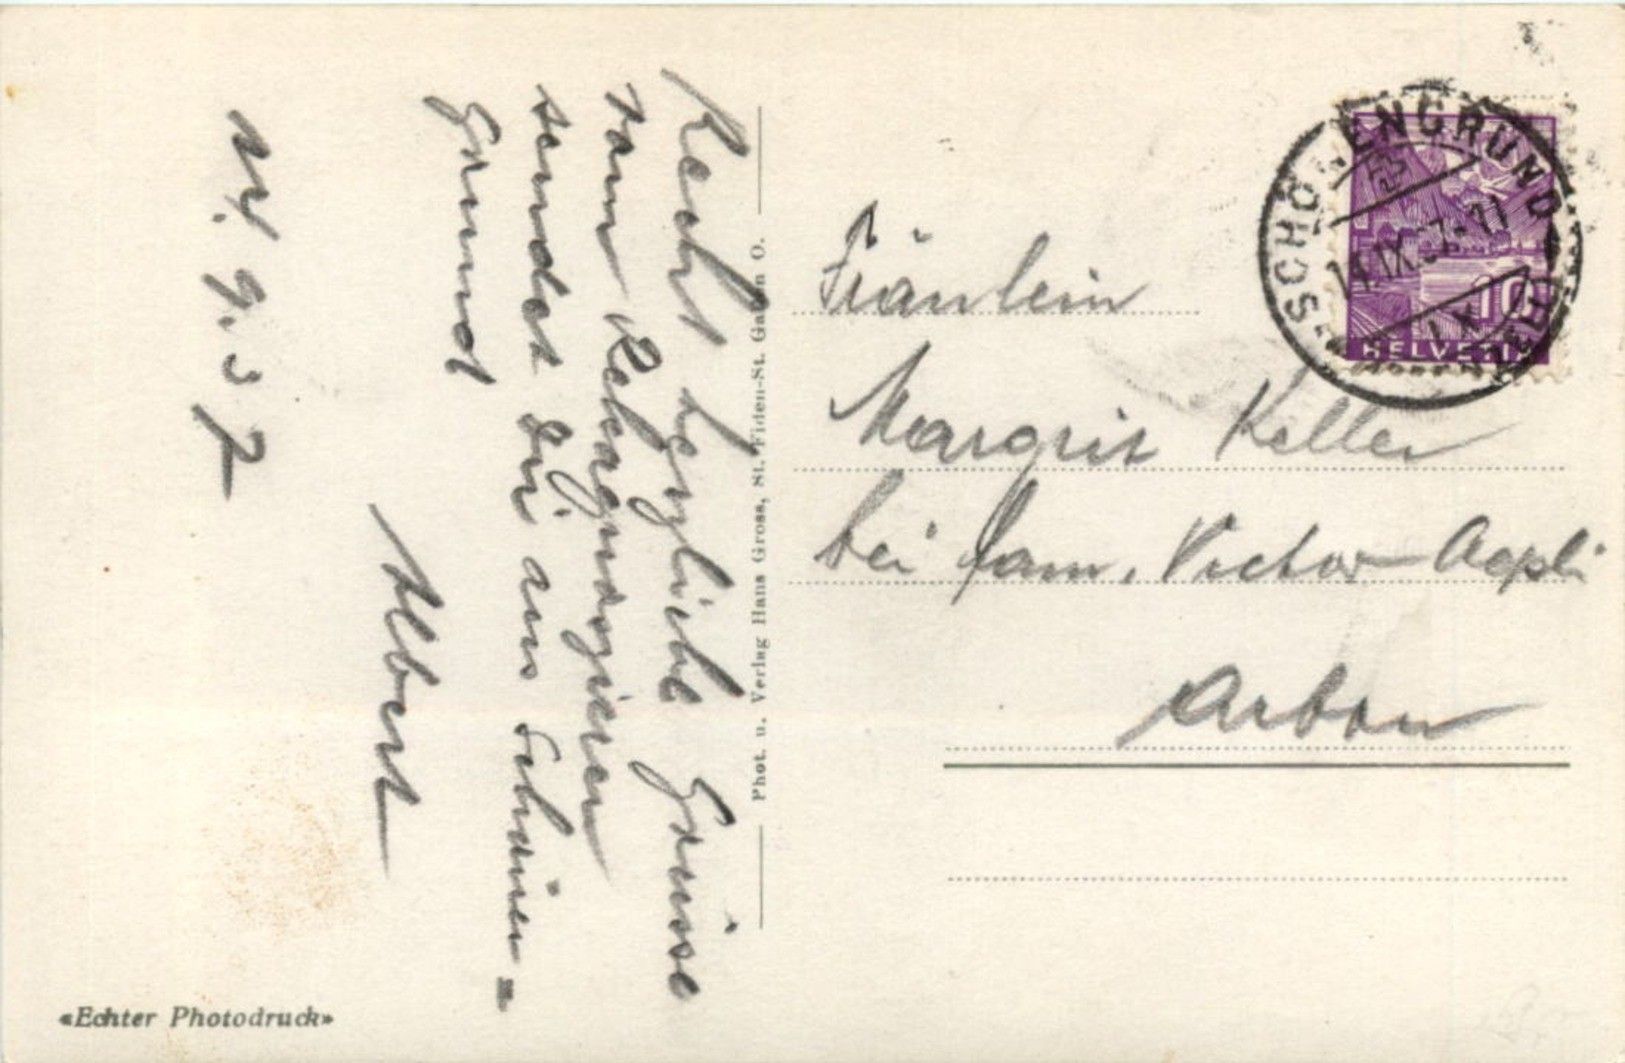 Recht herzliche Grüsse
vom Rekognoszieren
sendet Dir aus Schönen=
Grund
Albert
14. 9. 37
Phot. u. Verlag Hans Gross, St. Fiden-St. Gallen O.
«Echter Photodruck»
SCHÖNENGRUND
14.IX.37.-11
10
HELVETIA
Fräulein
Margrit Keller
bei Fam. Victor Aepli
Arbon